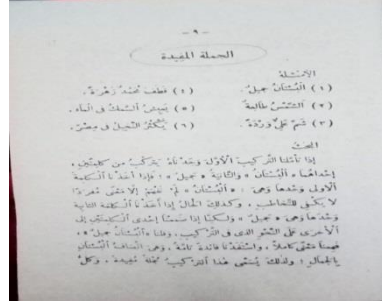 - ٩ -
الجملة المفيدة
الأمثلة
(١) اَلْبُسْتَانُ جَمِيلٌ. (٤) قَطَفَ مُحَمَّدٌ زَهْرَةً.
(٢) اَلشَّمْسُ طَالِعَةٌ. (٥) يَعِيشُ السَّمَكُ فى الماءِ.
(٣) شَمَّ عَلِىٌّ وَرْدَةً. (٦) يَكْثُرُ النَّخِيلُ فى مِصْرَ.
البحث
إذا تأملنا التركيب الأول وجدناه يتركب من كلمتين،
إحداهما «البستان» والثانية «جميل»؛ فإذا أخذنا الكلمة
الأولى وحدها وهى: «البستان» لم نفهم إلا معنى مفردا
لا يكفى للتخاطب، وكذلك الحال إذا أخذنا الكلمة الثانية
وحدها وهى: «جميل»، ولكنا إذا ضممنا إحدى الكلمتين إلى
الأخرى على النحو الذى فى التركيب، وقلنا «البستان جميل»،
فهمنا معنى كاملا، واستفدنا فائدة تامة، وهى اتصاف البستان
بالجمال؛ ولذلك يسمى هذا التركيب جملة مفيدة، وكل